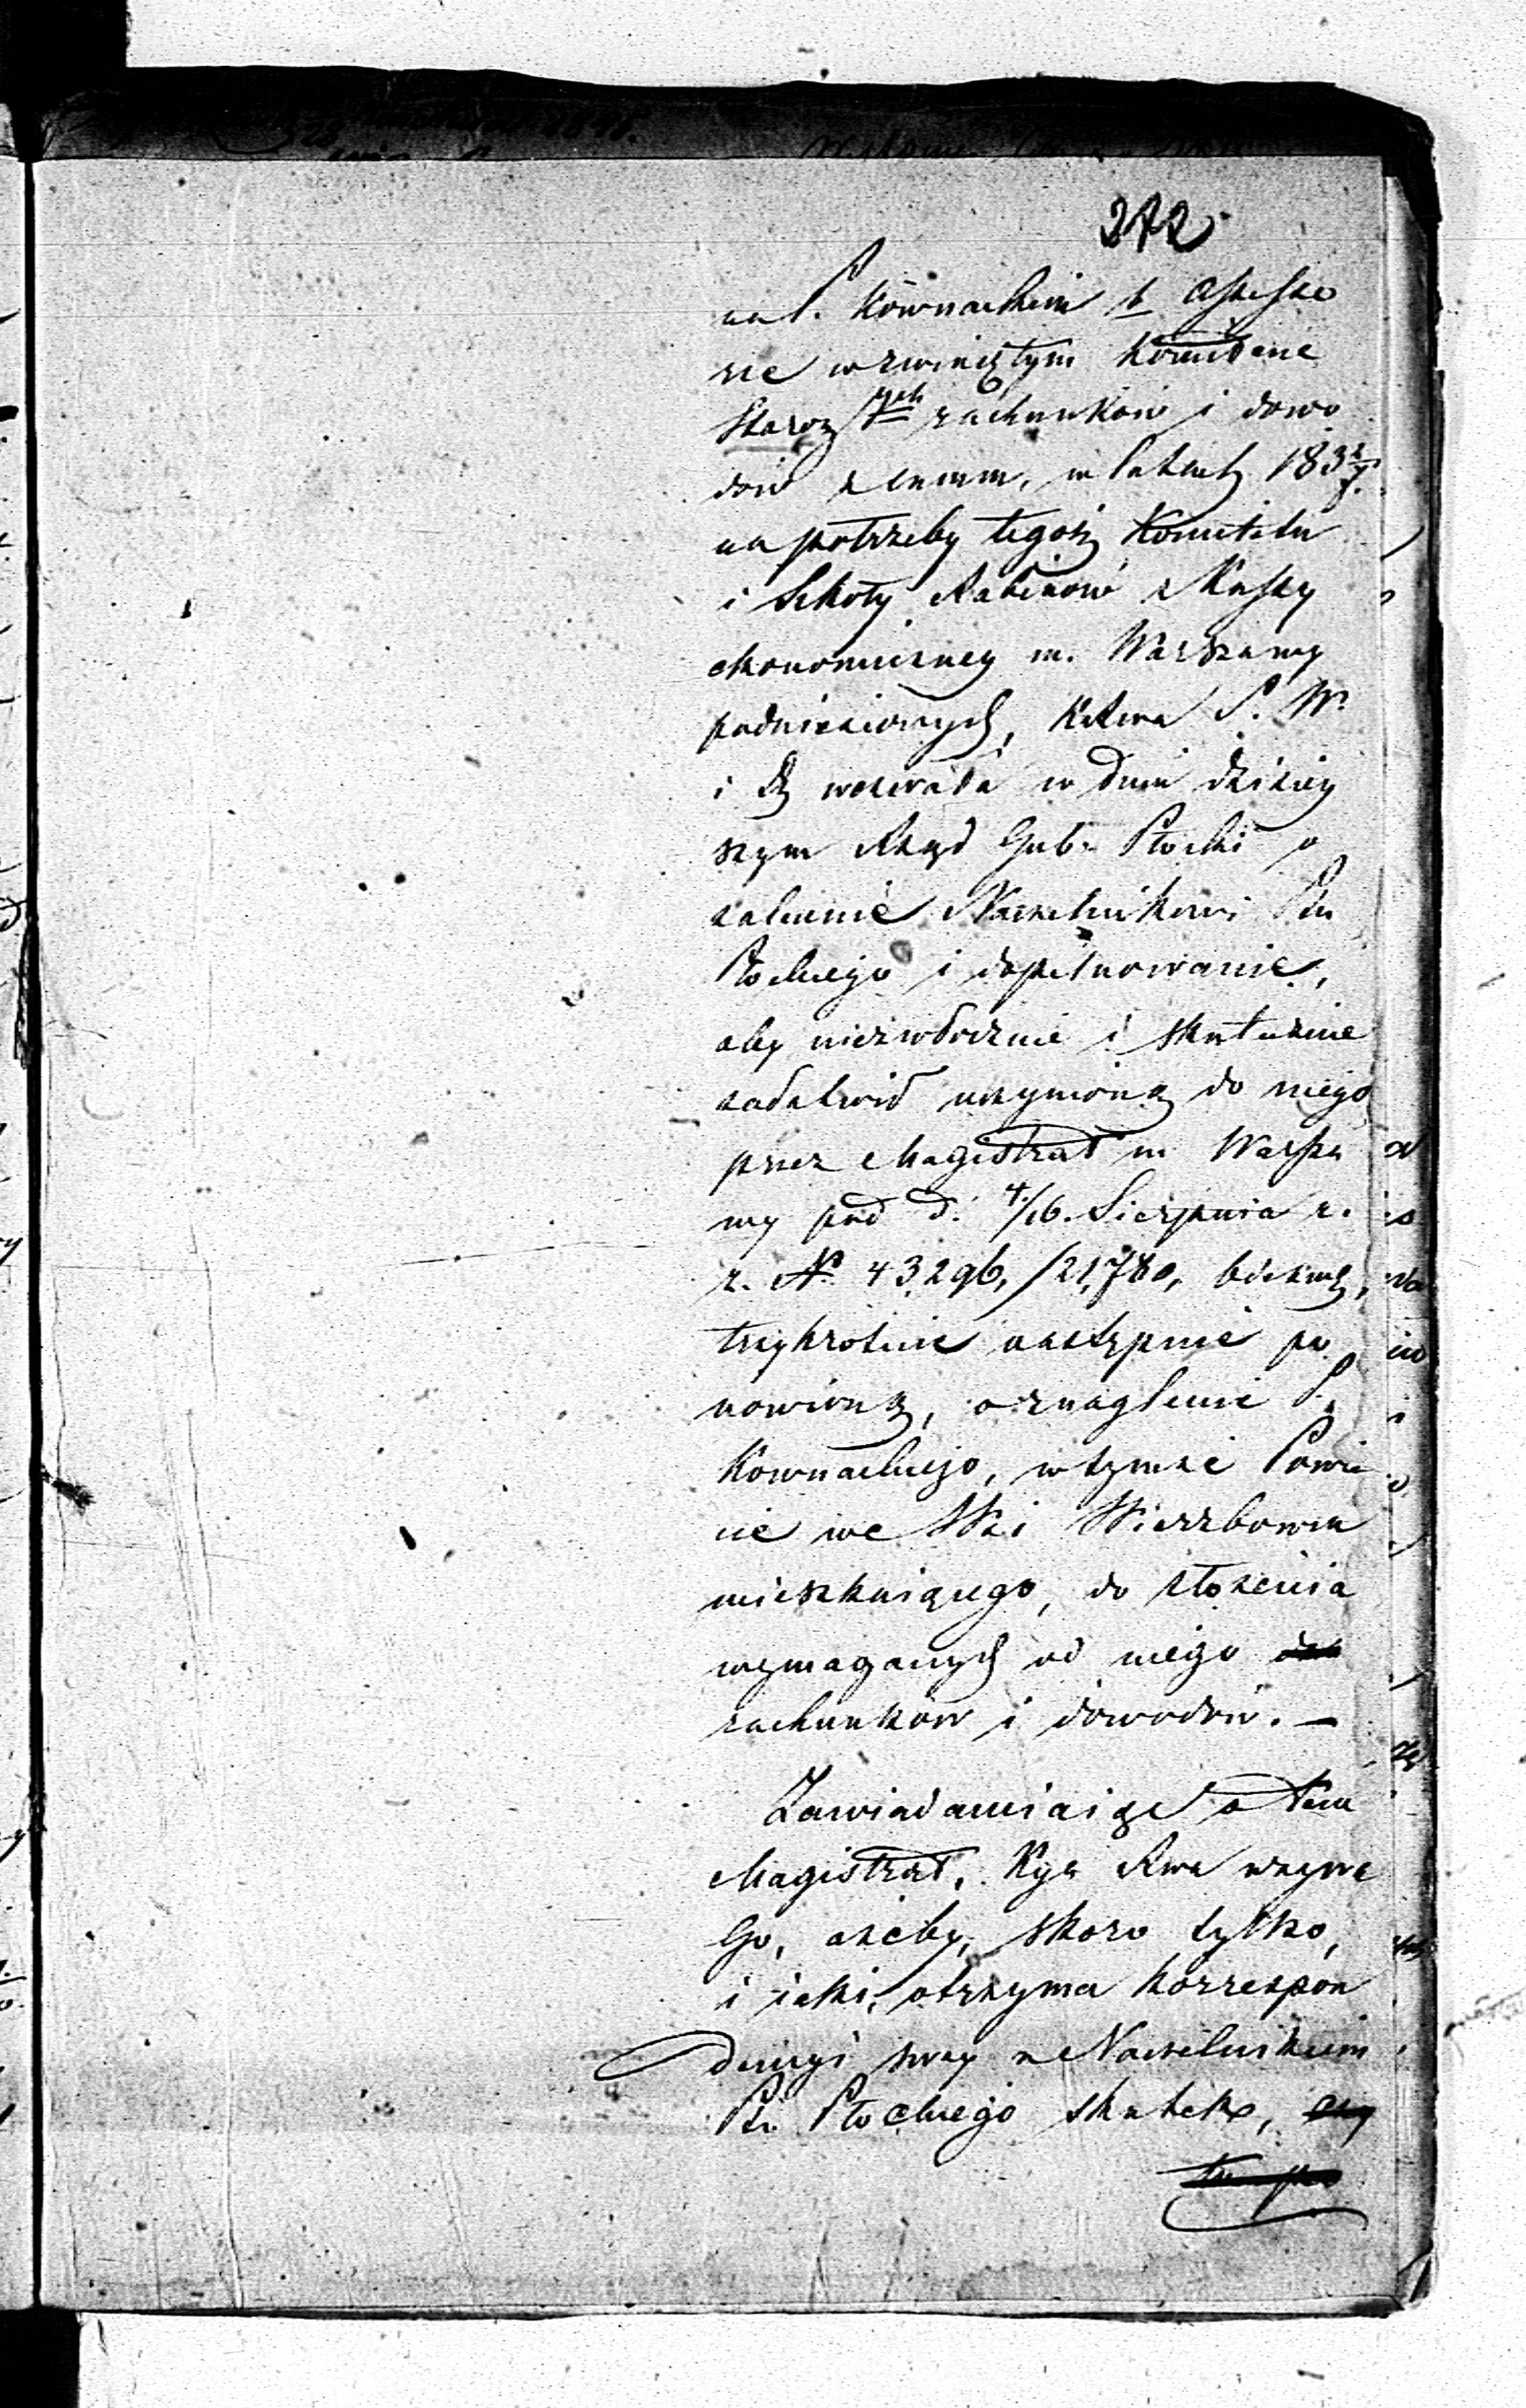 272
na P. Kownackim b. Assesso
rze w zwiniętym Komitecie
Staroz<sup>nych</sup> rachunków i dowo
dów z summ, w latach 183 7.
na potrzeby tegoż Komitetu
i Szkoły Rabinów z Kassy
ekonomiczney m. Warszawy
podniesionych, K. S. W.
i D. wezwała w dniu dzisiey
szym Rząd Gub: Płocki o
zalecenie Naczelnikowi Ptu
Płockiego i dopilnowanie,
aby niezwłocznie i skutecznie
załatwił uczynioną do niego
przez Magistrat m. Warsza
wy pod d. 4/16. Sierpnia r.
z. N<sup>o</sup> 43,296,/21,780,
trzykrotnie następnie po
nowioną, o znaglenie P.
Kownackiego, w tymże Powie
cie we Wsi Wierzbowcu
mieszkaiącego, do złożenia
wymaganych od niego
rachunków i dowodów. —
Zawiadamiaiąc o tem
Magistrat, Kya Rwa wzywa
Go, ażeby, skoro tylko,
i iaki, otrzyma korrespon
dencyi swey z Naczelnikiem
Ptu Płockiego skutek, czy